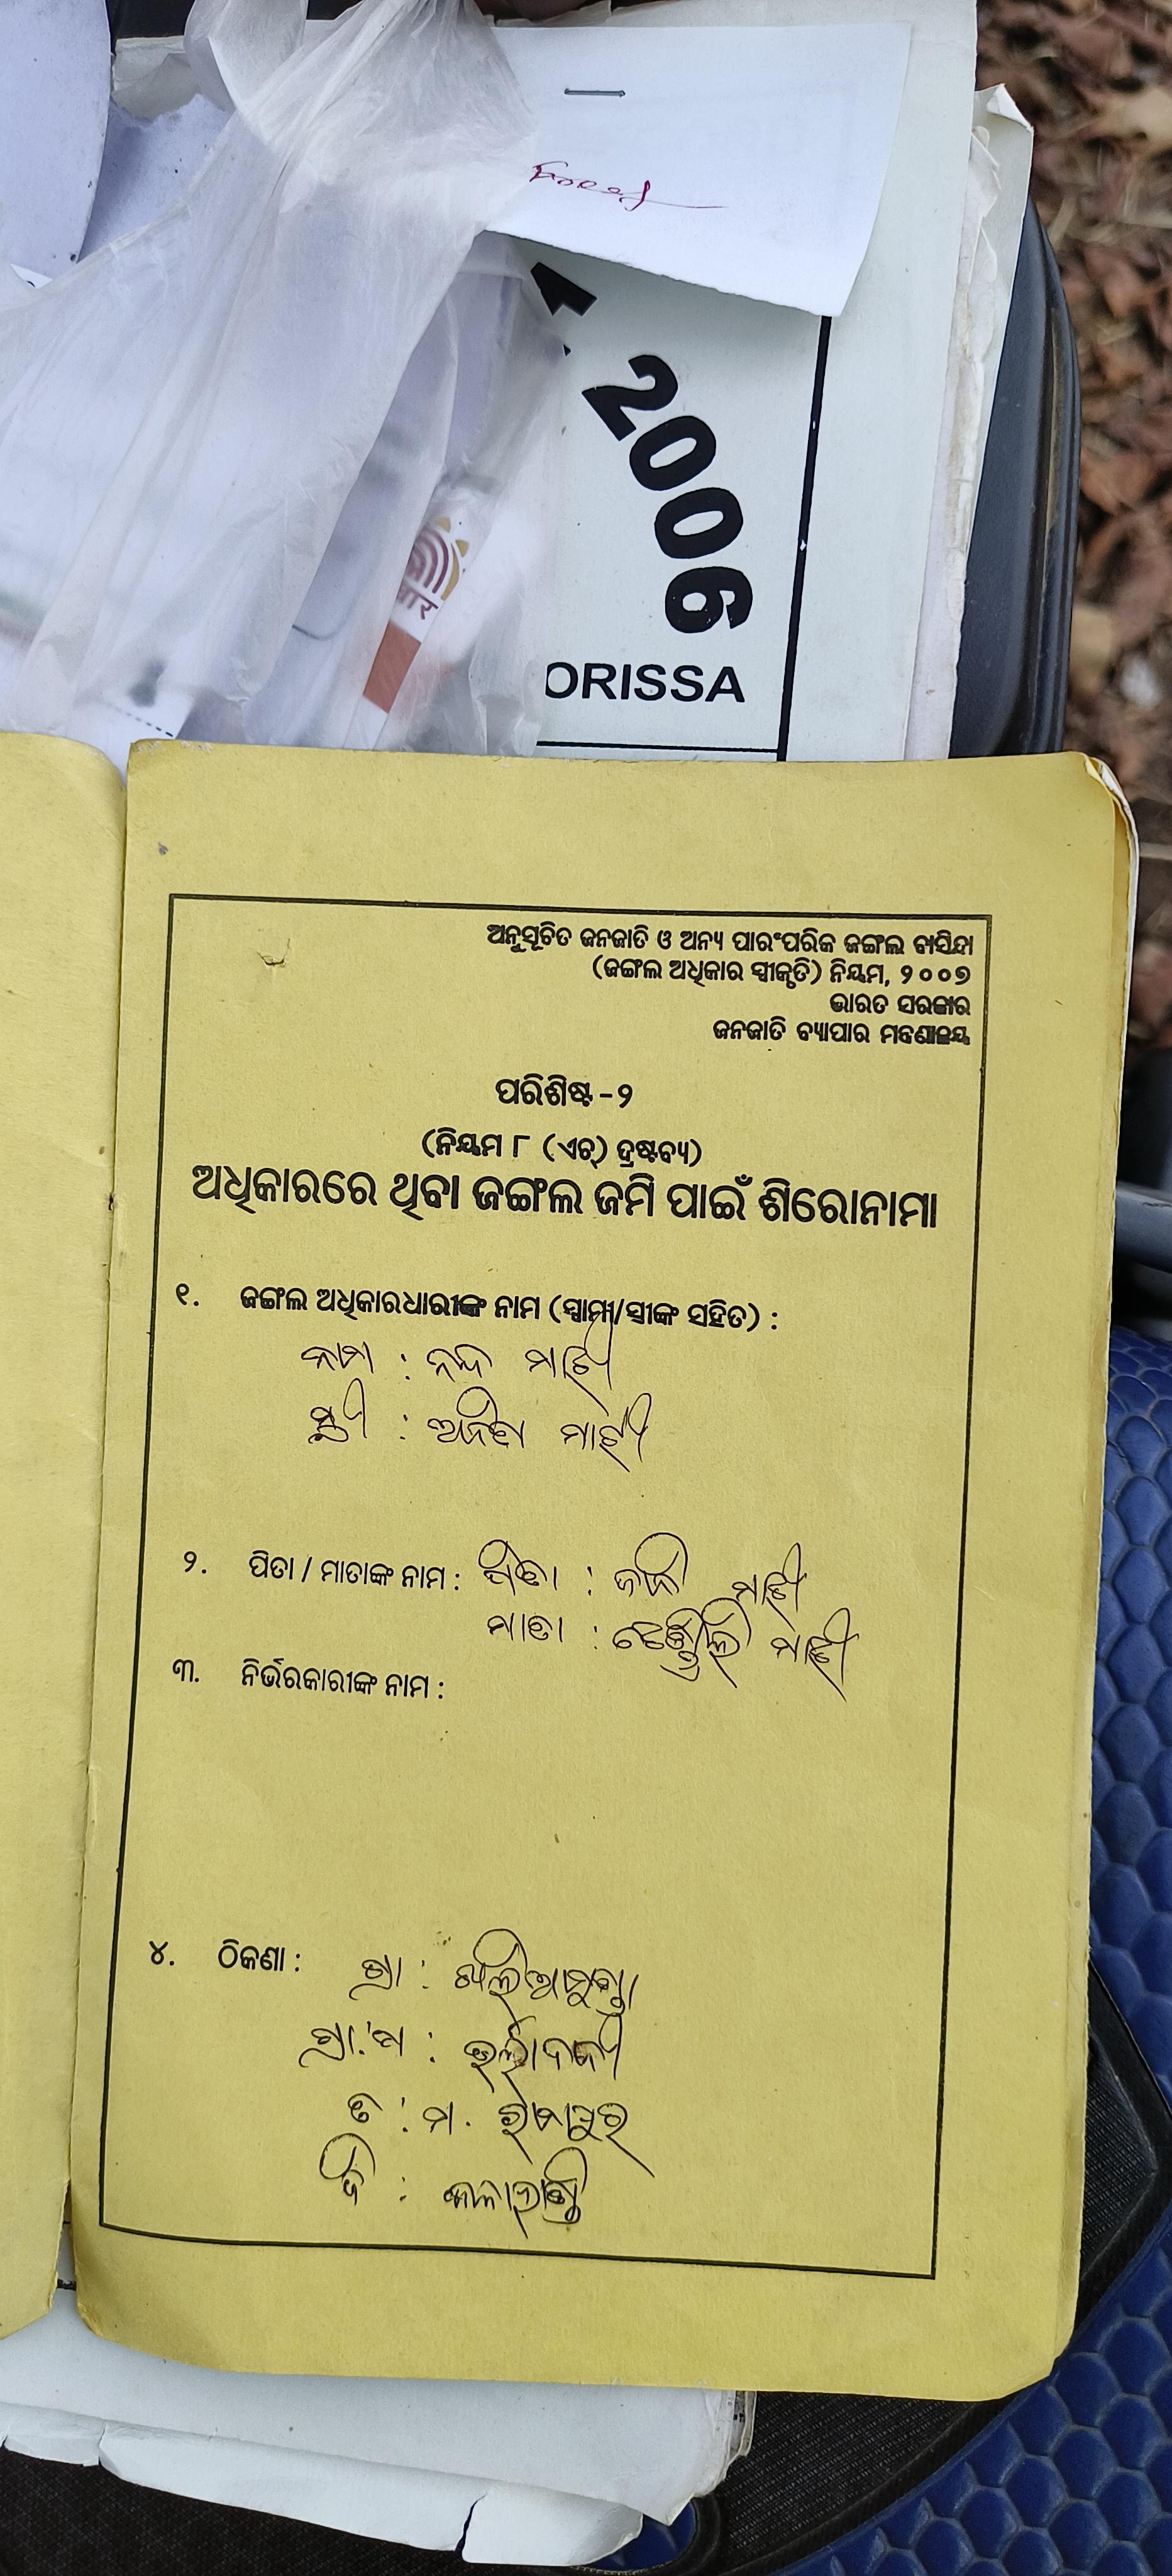 2006
ORISSA
ଅନୁସୂଚିତ ଜନଜାତି ଓ ଅନ୍ୟ ପାରଂପରିକ ଜଙ୍ଗଲ ବାସିନ୍ଦା
(ଜଙ୍ଗଲ ଅଧିକାର ସ୍ୱୀକୃତି) ନିୟମ, ୨୦୦୭
ଭାରତ ସରକାର
ଜନଜାତି ବ୍ୟାପାର ମନ୍ତ୍ରଣାଳୟ
ପରିଶିଷ୍ଟ -୨
(ନିୟମ ୮ (ଏଚ୍) ଦ୍ରଷ୍ଟବ୍ୟ)
ଅଧିକାରରେ ଥିବା ଜଙ୍ଗଲ ଜମି ପାଇଁ ଶିରୋନାମା
୧. ଜଙ୍ଗଲ ଅଧିକାରଧାରୀଙ୍କ ନାମ (ସ୍ୱାମୀ/ସ୍ତ୍ରୀଙ୍କ ସହିତ) :
ନାମ : ନନ୍ଦ ମାଝୀ
ସ୍ତ୍ରୀ : ମାଝୀ
୨. ପିତା / ମାତାଙ୍କ ନାମ : ପିତା : ମାଝୀ
ମାତା : ମାଝୀ
୩. ନିର୍ଭରକାରୀଙ୍କ ନାମ :
୪. ଠିକଣା : ଗ୍ରା :
ଗ୍ରା.ପ :
ତ : ମ. ରାମପୁର
ଜି : କଳାହାଣ୍ଡି